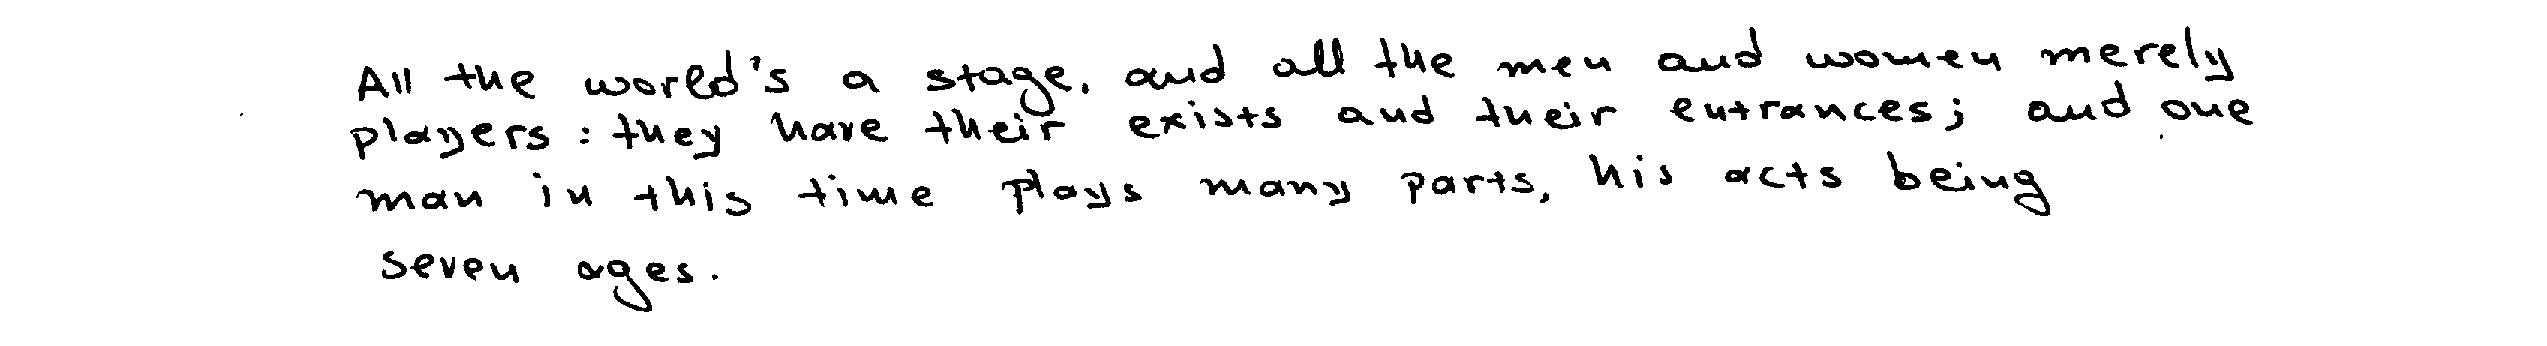 All the world's a stage, and all the men and women merely
players: they have their exists and their entrances; and one
man in this time plays many parts, his acts being
seven ages.